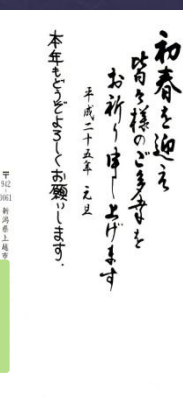 初春を迎え
皆々様のご多幸を
お祈り申し上げます
平成二十五年 元旦
本年もどうぞよろしくお願いします。
〒942-0061 新潟県上越市